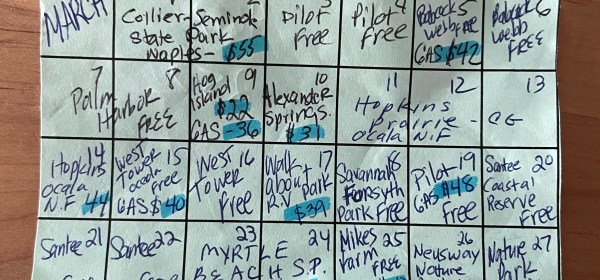 MARCH
Collier-Seminole 2
State Park
Naples- $55
Pilot 3
Free
Pilot 4
Free
Babcock 5
Webb FREE
GAS $42
Babcock 6
Webb
FREE
7 8
Palm
Harbor
FREE
Hog 9
Island
$22
GAS -36
10
Alexander
Springs.
$31
11 12 13
Hopkins
Prairie - CG
Ocala N.F
Hopkins 14
Ocala
N.F 44
West 15
Tower
Ocala
Free
GAS $40
West 16
Tower
Free
Walk 17
about
R.V Park
$39
Savannah 18
Forsyth
Park Free
Pilot 19
GAS $48
Free
Santee 20
Coastal
Reserve Free
Santee 21
Santee 22
23 24
MYRTLE
BEACH S.P.
Mikes 25
Farm FREE
26
Neusway
Nature
Nature 27
Park